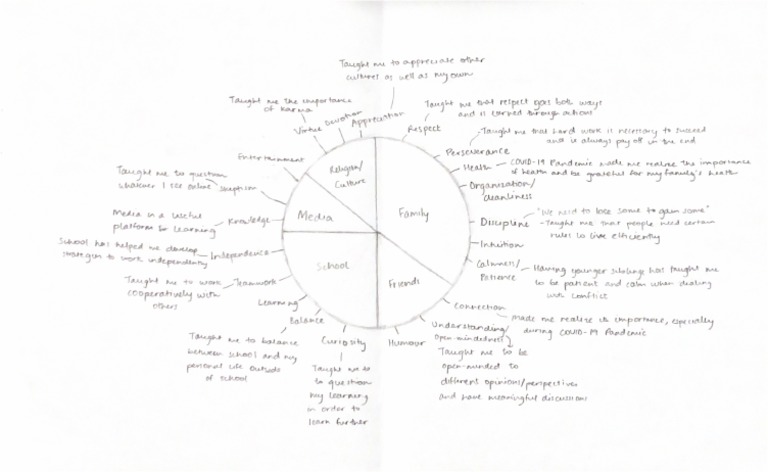 Taught me to appreciate other
cultures as well as my own
Appreciation
Devotion
Virtue
Taught me the importance
of karma
Entertainment
Religion/
Culture
Taught me to question
whatever I see online
Media
Media is a useful
platform for learning
Knowledge
School has helped me develop
strategies to work independently
Independence
School
Taught me to work
cooperatively with
others
Teamwork
Learning
Balance
Taught me to balance
between school and my
personal life outside
of school
Curiosity
Taught me to
to question
my learning
in order to
learn further
Family
Respect
Taught me that respect goes both ways
and is earned through actions
Perseverance
Taught me that hard work is necessary to succeed
and is always pay off in the end
Health
COVID-19 Pandemic made me realize the importance
of health and be grateful for my family's health
Organization/
cleanliness
Discipline
"We need to lose some to gain some"
- Taught me that people need certain
rules to live efficiently
Intuition
Calmness/
Patience
Having younger siblings has taught me
to be patient and calm when dealing
with conflict
Friends
Connection
Made me realize its importance, especially
during COVID-19 Pandemic
Understanding/
open-mindedness
Taught me to be
open-minded to
different opinions/perspectives
and have meaningful discussions
Humour